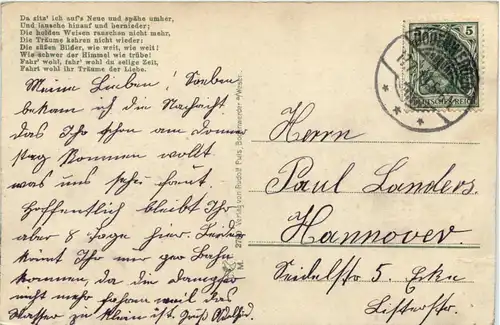 Da sitz' ich auf's Neue und spähe umher,
Und lausche hinauf und hernieder;
Die holden Weisen rauschen nicht mehr,
Die Träume kehren nicht wieder;
Die süßen Bilder, wie weit, wie weit!
Wie schwer der Himmel wie trübe!
Fahr' wohl, fahr' wohl du selige Zeit,
Fahrt wohl ihr Träume der Liebe.
Meine Lieben! Soeben
bekam ich die Nachricht
das Ihr schon am Donner
stag kommen wollt
was uns sehr freut.
Hoffentlich bleibt Ihr
aber 8 Tage hier. Leider
könnt Ihr nur per Bahn
kommen, da die Dampfer
nicht mehr fahren weil das
Wasser zu klein ist. Gruß
Verlag von Rudolf
M.
5
DEUTSCHES REICH
Herrn
Paul Landers.
Hannover.
Seidelstr 5. Ecke
Listerstr.